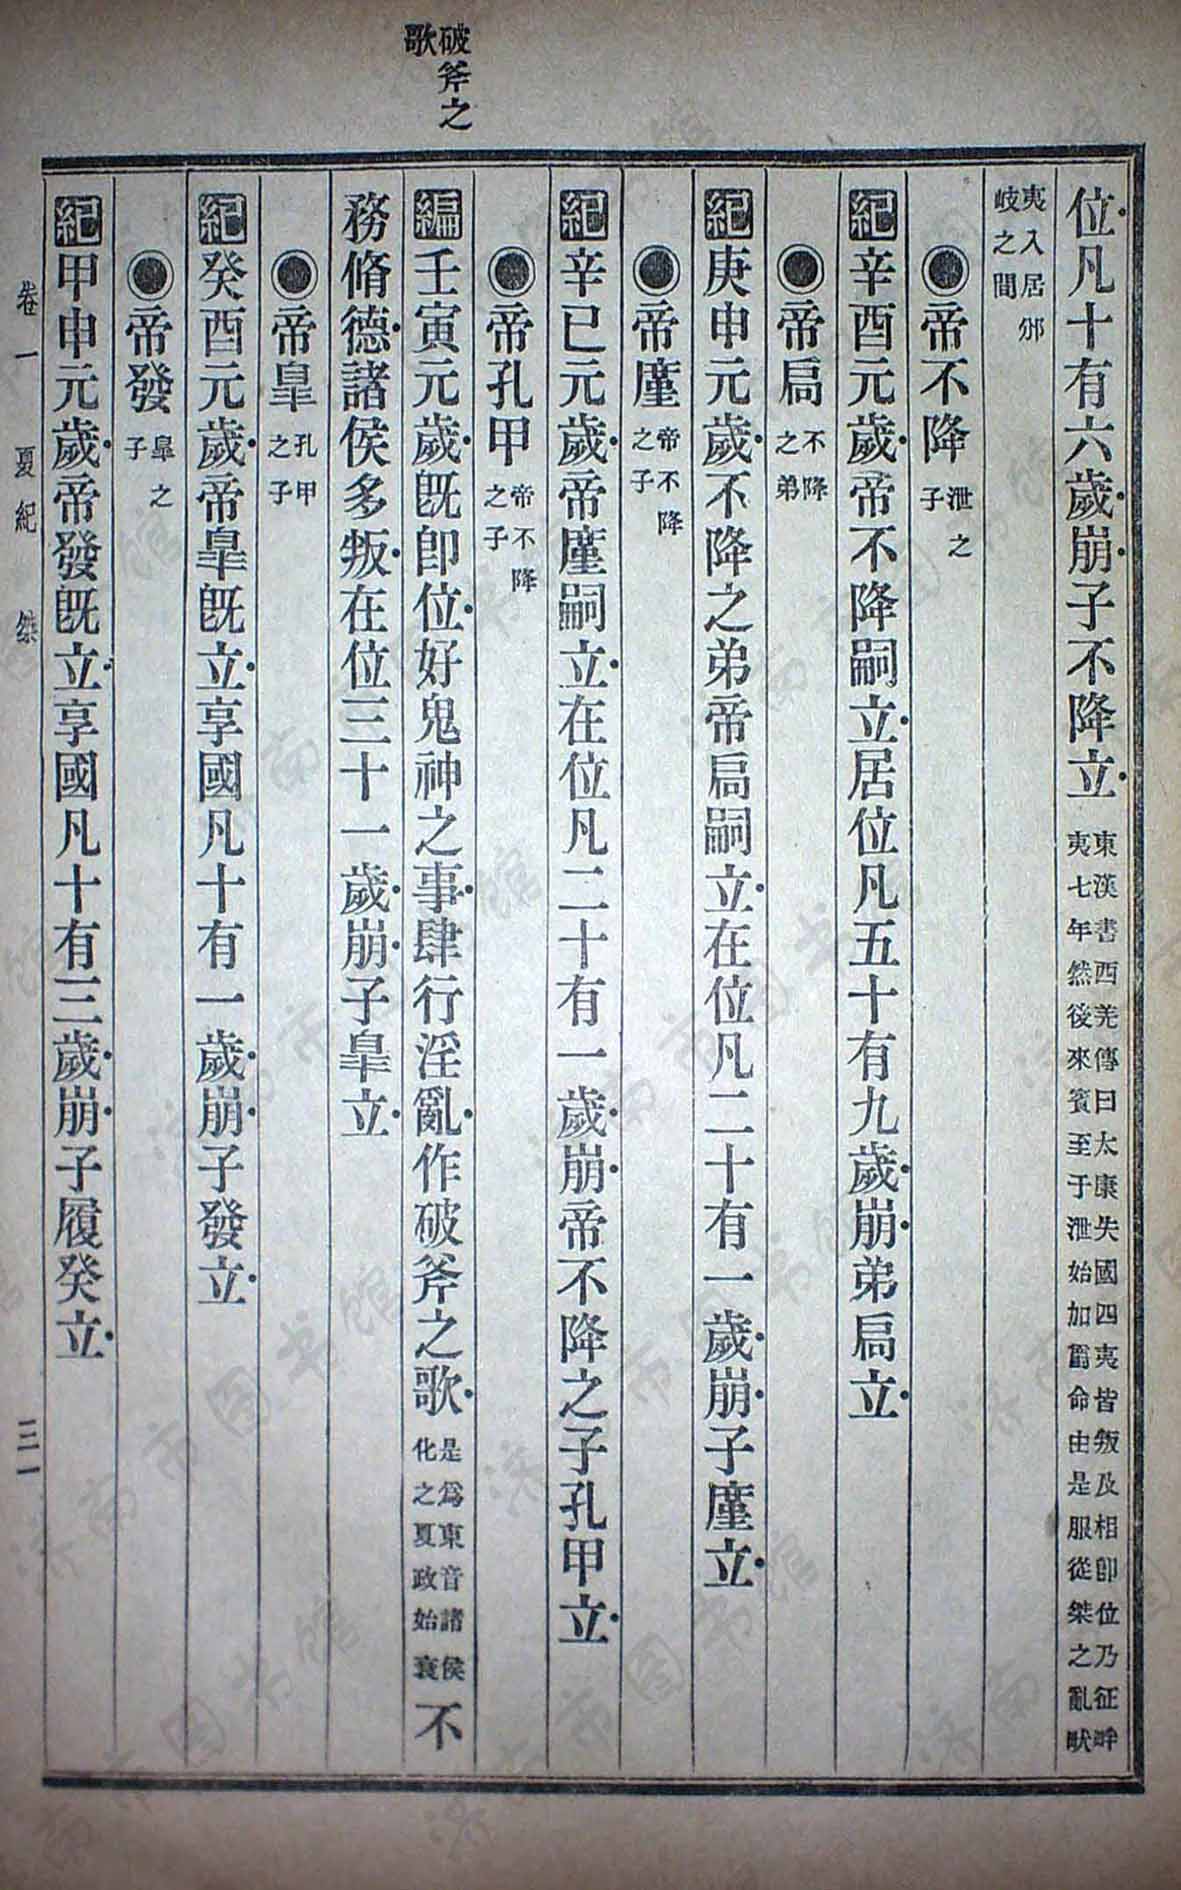 破斧之
歌
位凡十有六歲崩子不降立
東漢書西羌傳曰太康失國四夷皆叛及相卽位乃征畎
夷七年然後來賓至于泄始加爵命由是服從桀之亂畎
夷入居邠
岐之間
帝不降
泄之
子
紀辛酉元歲帝不降嗣立居位凡五十有九歲崩弟扃立
帝扃
不降
之弟
紀庚申元歲不降之弟帝扃嗣立在位凡二十有一歲崩子廑立
帝廑
帝不降
之子
紀辛巳元歲帝廑嗣立在位凡二十有一歲崩帝不降之子孔甲立
帝孔甲
帝不降
之子
編壬寅元歲旣卽位好鬼神之事肆行淫亂作破斧之歌
是爲東音諸侯
化之夏政始衰
不
務脩德諸侯多叛在位三十一歲崩子皐立
帝皐
孔甲
之子
紀癸酉元歲帝皐旣立享國凡十有一歲崩子發立
帝發
皐之
子
紀甲申元歲帝發旣立享國凡十有三歲崩子履癸立
卷一 夏紀 桀 三一